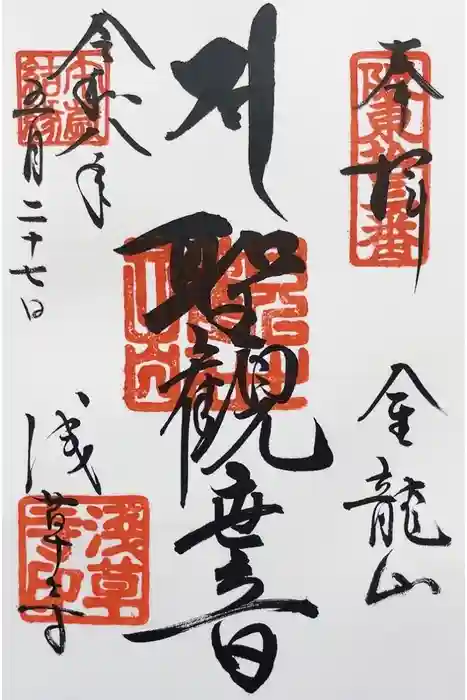 奉拝
阪東拾三番
金龍山
聖観世音
令和八年
五月二十七日
浅草寺
浅草寺印